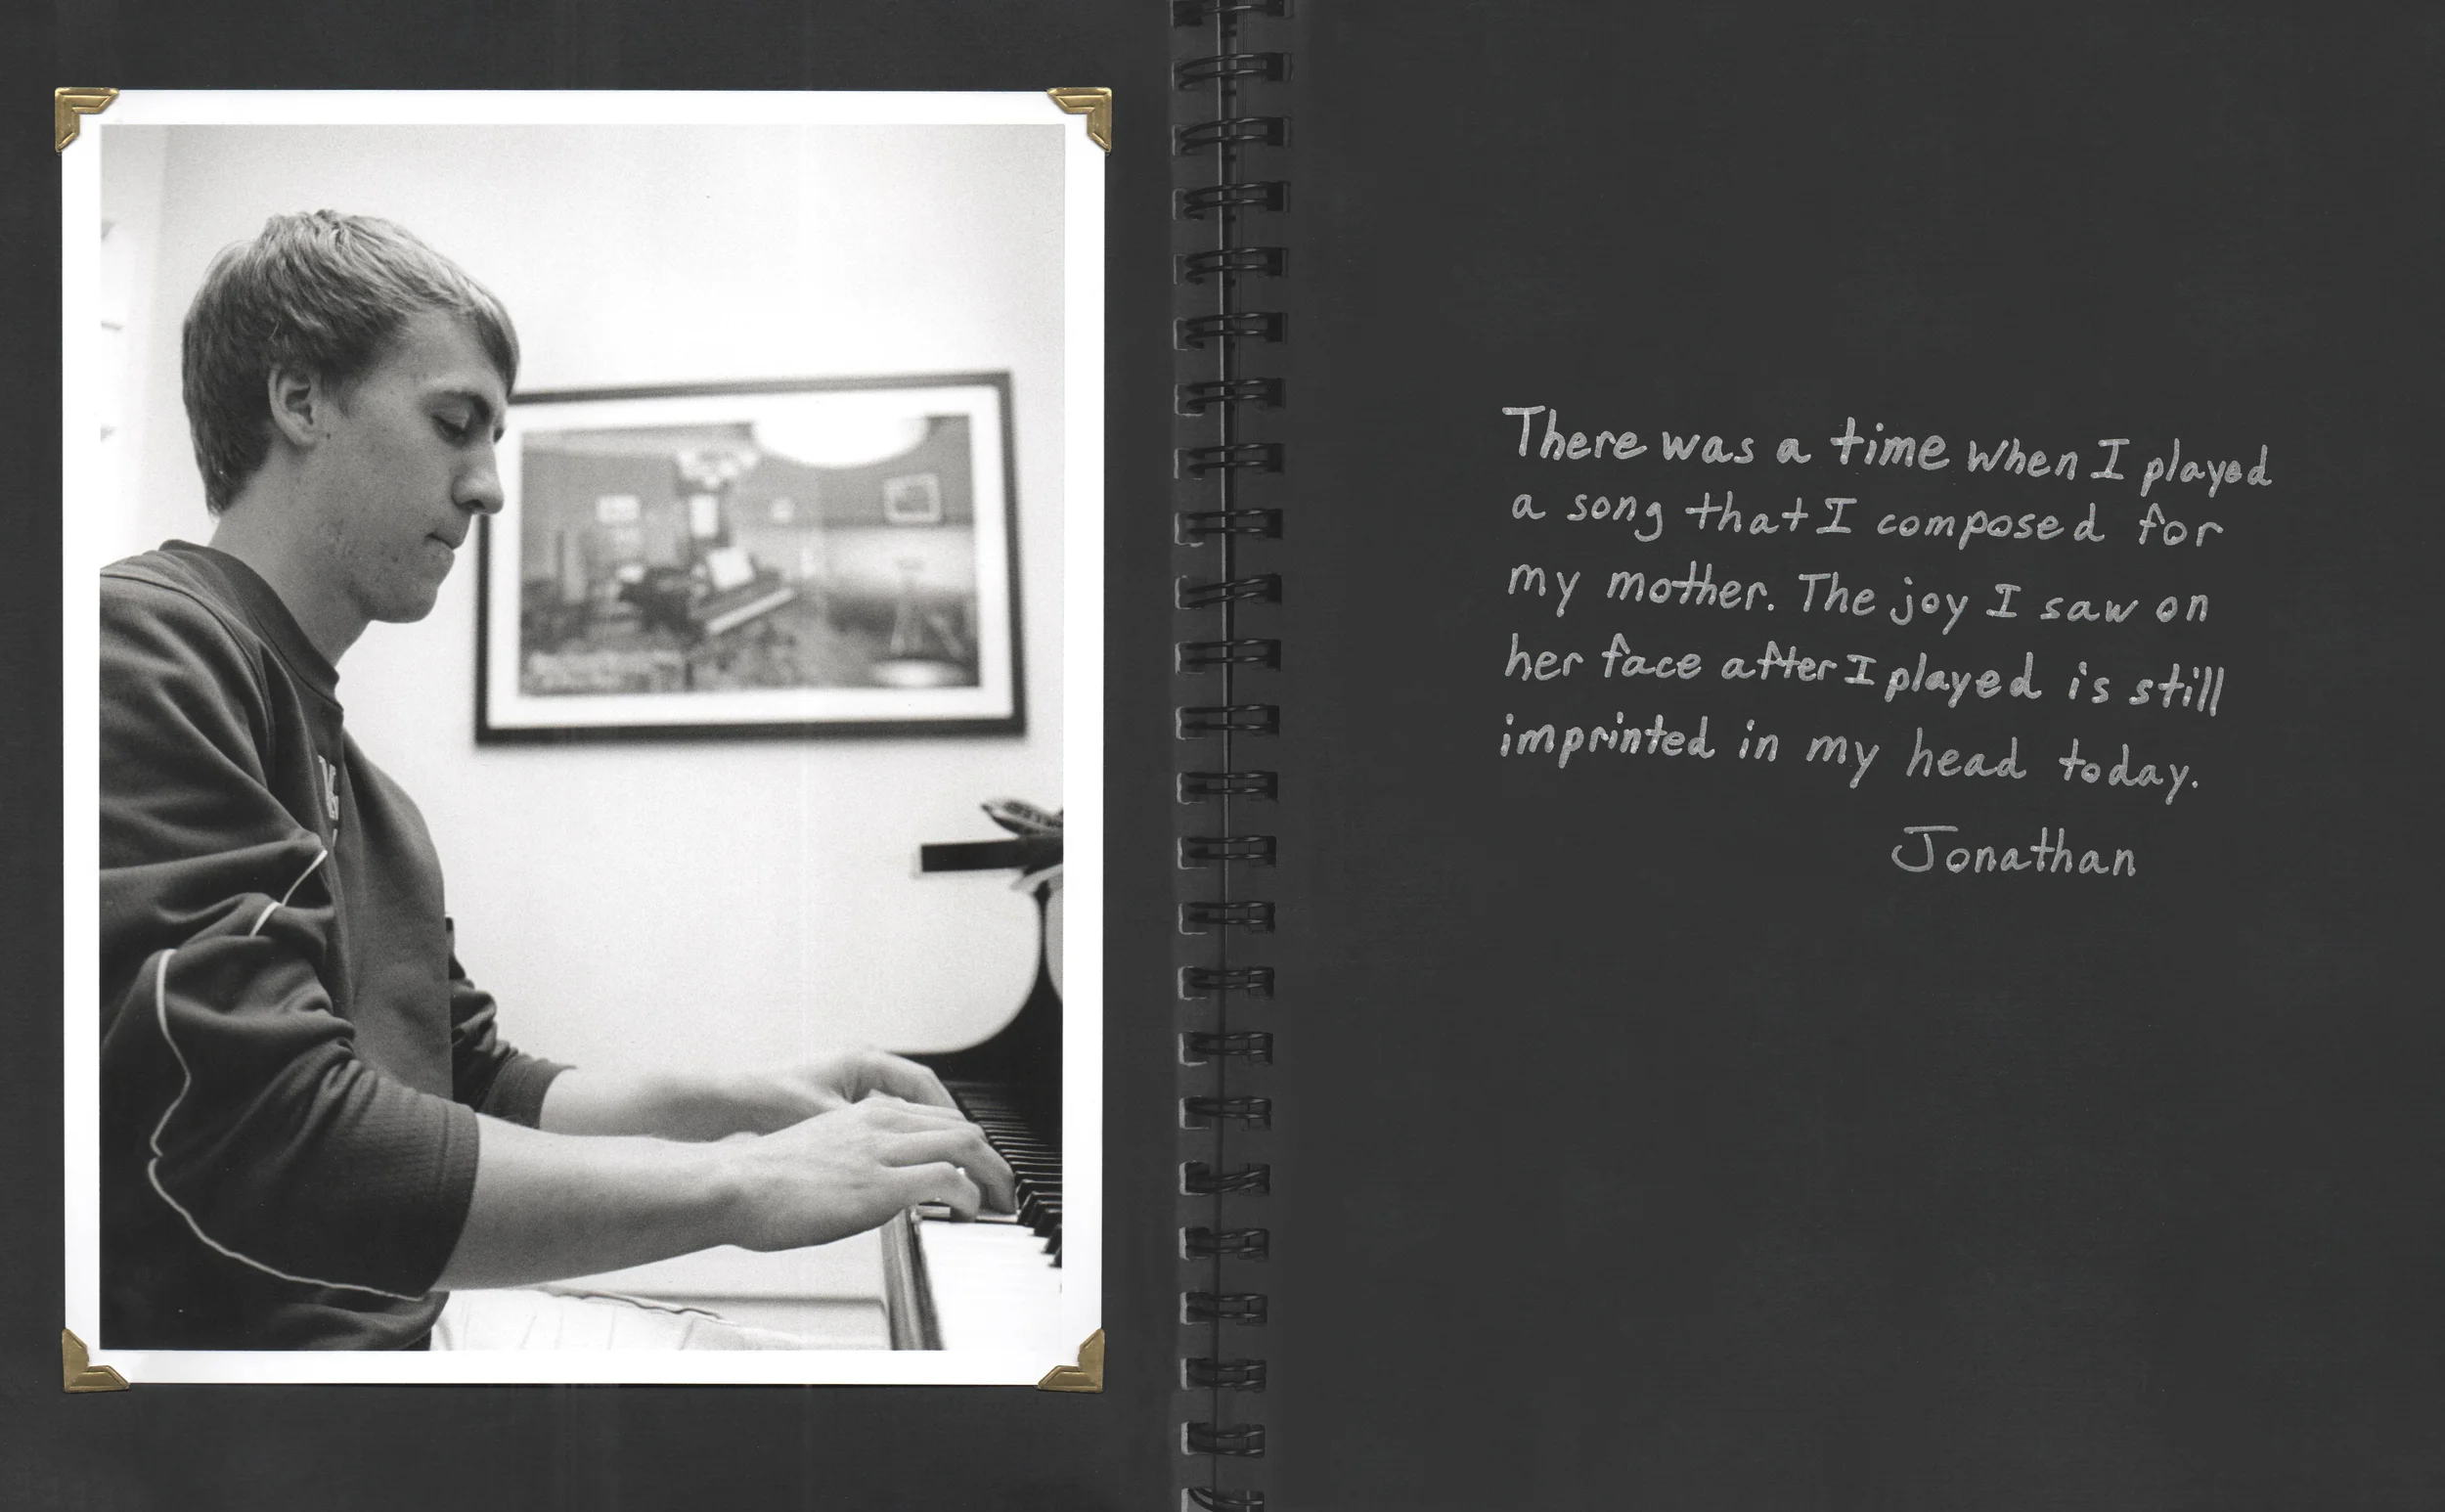 There was a time when I played
a song that I composed for
my mother. The joy I saw on
her face after I played is still
imprinted in my head today.
Jonathan